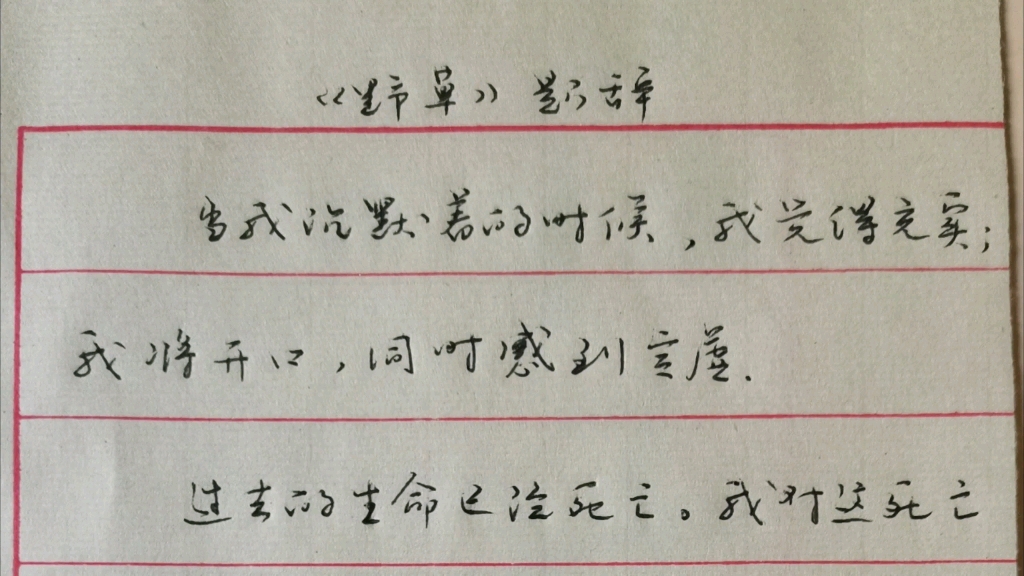 《野草》题辞
当我沉默着的时候，我觉得充实；
我将开口，同时感到空虚.
过去的生命已经死亡。我对这死亡